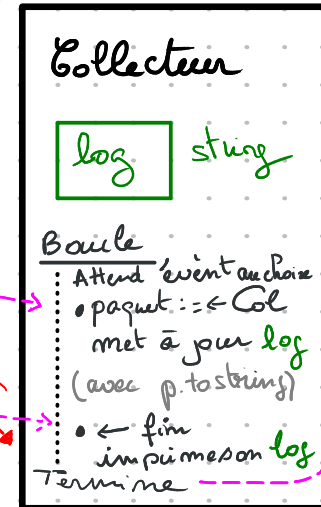 Collecteur
log string
Boucle
Attend évènt au choix
• paquet := ← Col
met à jour log
(avec p.tostring)
• ← fin
imprime son log
Termine